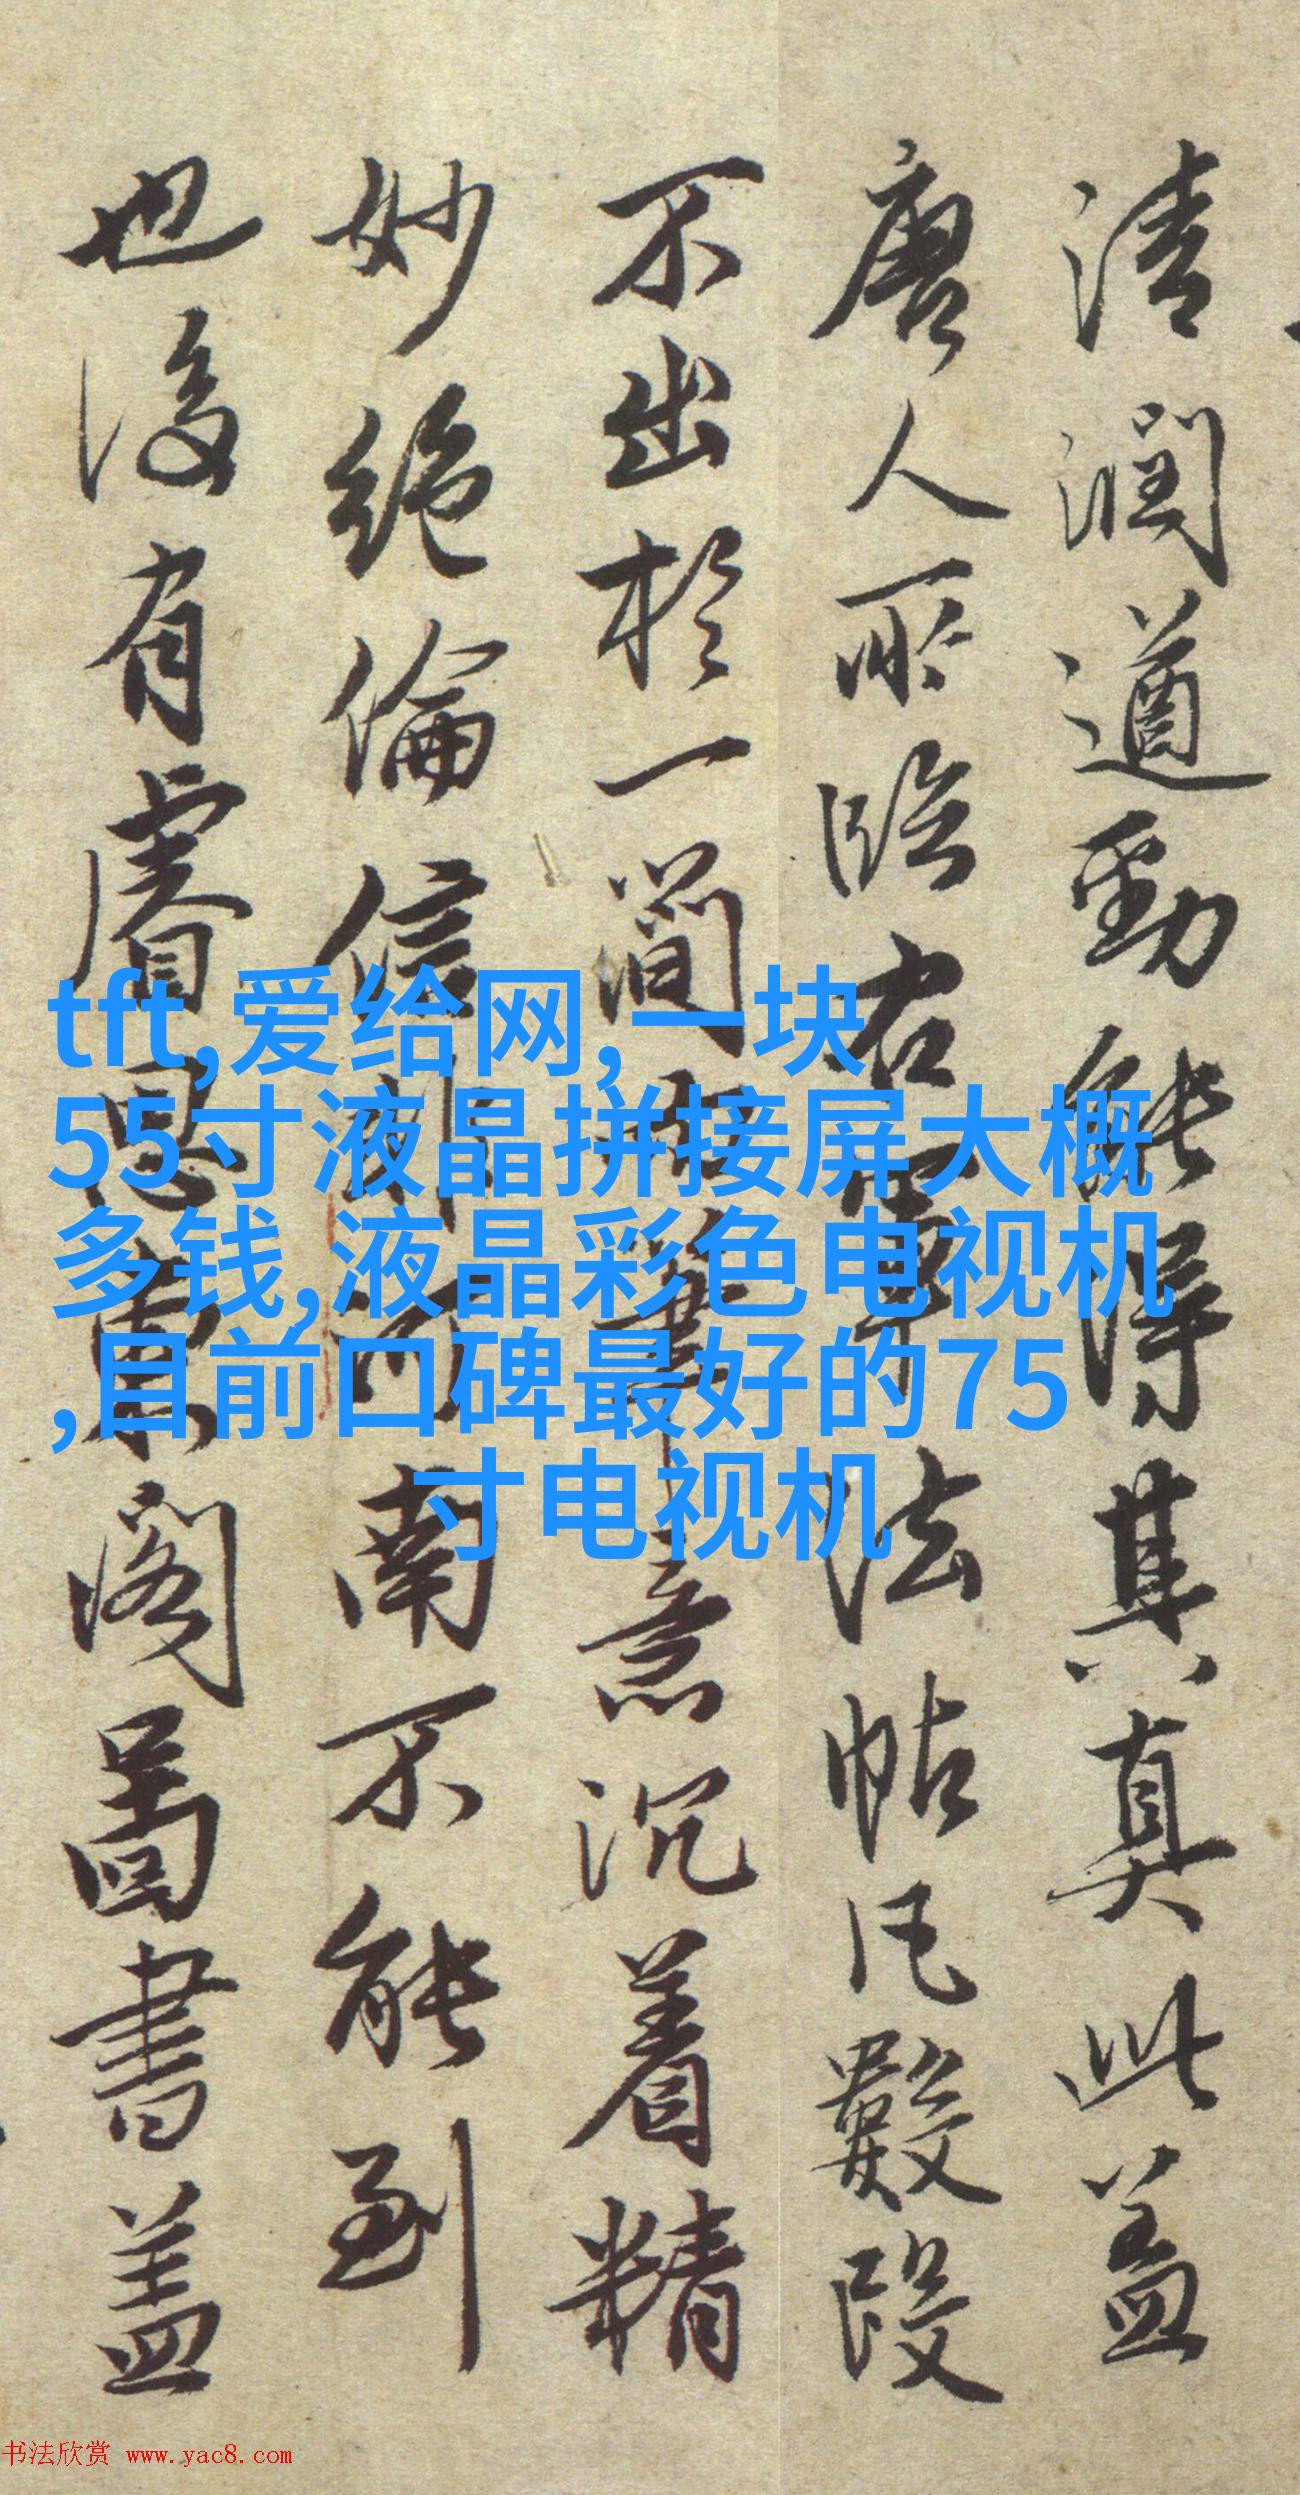 清潤遒勁能得其真此盖
唐人所臨右軍法帖凡數段
不出於一簡而筆意沉着精
妙絶倫信非河南不能到
也後有睿思東閣圖書盖
tft,爱给网,一块
55寸液晶拼接屏大概
多钱,液晶彩色电视机
,目前口碑最好的75
寸电视机
书法欣赏 www.yac8.com